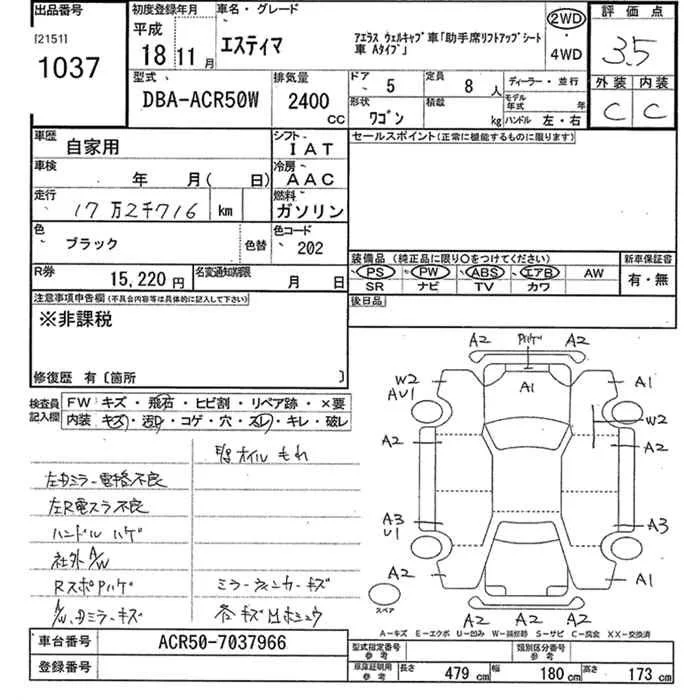 出品番号
[2151]
1037
初度登録年月
平成
18 11 月
車名・グレード
エスティマ
アエラス ウェルキャブ車「助手席リフトアップシート
車 Aタイプ」
2WD
・
4WD
評価点
3.5
外装 内装
C C
型式
DBA-ACR50W
排気量
2400
CC
ドア 5
定員 8 人
形状 ワゴン
積載 kg
ディーラー・並行
モデル年式 年
ハンドル 左・右
車歴
自家用
シフト
IAT
セールスポイント(正常に機能するものに限ります)
車検
年 月( 日)
冷房
AAC
走行
17万2千716 km
燃料
ガソリン
色
ブラック
色替
色コード
202
装備品 (純正品に限り○をつけてください)
PS PW ABS エアB AW
SR ナビ TV カワ
新車保証書
有・無
R券
15,220 円
名変通知期限
月 日
後日品
注意事項申告欄(不具合内容等は具体的に記入して下さい)
※非課税
修復歴 有〔箇所 〕
検査員
記入欄
FW キズ・飛石・ヒビ割・リペア跡・×要
内装 キズ・汚レ・コゲ・穴・スレ・キレ・破レ
オイルもれ
左Dミラー電格不良
左R電スラ不良
ハンドルハゲ
社外A/W
RスポPハゲ
ミラーウィンカーキズ
A/W、Dミラーキズ
A2 Pハゲ A2
W2
AU1
A1
A1
W2
A2
A2
A3
U1
A3
A2
A1
A2 A2 A2
スペア
A-キズ E-エクボ U-凹み W-補修跡 S-サビ C-腐食 XX-交換済
車台番号
ACR50-7037966
登録番号
型式指定番号
参考
類別区分番号
参考
車庫証明用
参考
長さ 479 cm
幅 180 cm
高さ 173 cm